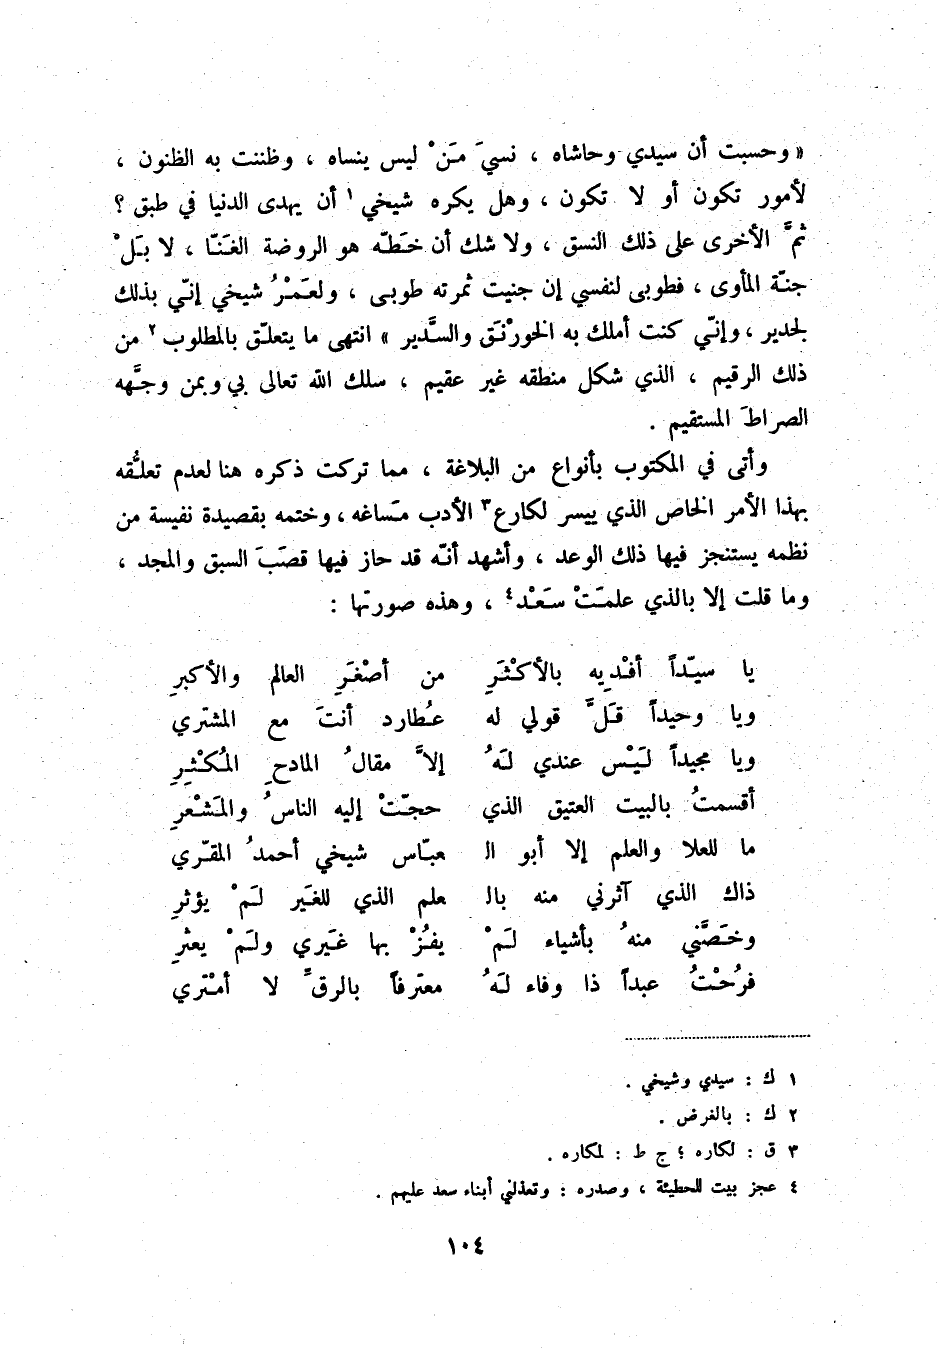 « وحسبت أن سيدي وحاشاه ، نسيَ مَنْ ليس ينساه ، وظننت به الظنون ،
لأمور تكون أو لا تكون ، وهل يكره شيخي ١ أن يهدى الدنيا في طبق ؟
ثمَّ الأخرى على ذلك النسق ، ولا شك أن خَطّه هو الروضة الغَنّا ، لا بَلْ
جنّة المأوى ، فطوبى لنفسي إن جنيت ثمرته طوبى ، ولعَمْرُ شيخي إنّي بذلك
لجدير ، وإنّي كنت أملك به الخورْنَق والسَّدير » انتهى ما يتعلّق بالمطلوب ٢ من
ذلك الرقيم ، الذي شكل منطقه غير عقيم ، سلك الله تعالى بي وبمن وجَّهه
الصراطَ المستقيم .
وأتى في المكتوب بأنواع من البلاغة ، مما تركت ذكره هنا لعدم تعلُّقه
بهذا الأمر الخاص الذي ييسر لكارع ٣ الأدب مَساغه ، وختمه بقصيدة نفيسة من
نظمه يستنجز فيها ذلك الوعد ، وأشهد أنّه قد حاز فيها قصَبَ السبق والمجد ،
وما قلت إلا بالذي علمَتْ سَعْد ٤ ، وهذه صورتها :
يا سيّداً أفْديه بالأكْثَرِ من أصْغَرِ العالم والأكبرِ
ويا وحيداً قَلَّ قولي له عُطارد أنتَ مع المشتري
ويا مجيداً لَيْس عندي لَهُ إلاَّ مقالُ المادحِ المُكْثِرِ
أقسمتُ بالبيت العتيق الذي حجّتْ إليه الناسُ والمَشْعرِ
ما للعلا والعلم إلا أبو ال عبّاس شيخي أحمدُ المقّري
ذاك الذي آثرني منه بال علم الذي للغَير لَمْ يؤثرِ
وخَصَّني منهُ بأشياء لَمْ يفُزْ بها غَيري ولَمْ يعثرِ
فرُحْتُ عبداً ذا وفاء لَهُ معترفاً بالرقَّ لا أمْتري
١ ك : سيدي وشيخي .
٢ ك : بالغرض .
٣ ق : لكاره ؛ ج ط : لمكاره .
٤ عجز بيت للحطيئة ، وصدره : وتعذلني أبناء سعد عليهم .
١٠٤